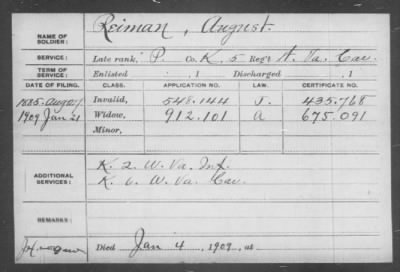 NAME OF SOLDIER: Reiman, August.
SERVICE: Late rank, P. Co. K. 5 Reg't W. Va. Cav.
TERM OF SERVICE: Enlisted , 1 Discharged , 1
DATE OF FILING. CLASS. APPLICATION NO. LAW. CERTIFICATE NO.
1885-Aug 7 Invalid, 548.144 J. 435.768
1909 Jan 21 Widow, 912.101 A 675.091
Minor,
ADDITIONAL SERVICES: K. 2. W. Va. Inf.
K. 6. W. Va. Cav.
REMARKS:
Died Jan 4, 1909, at